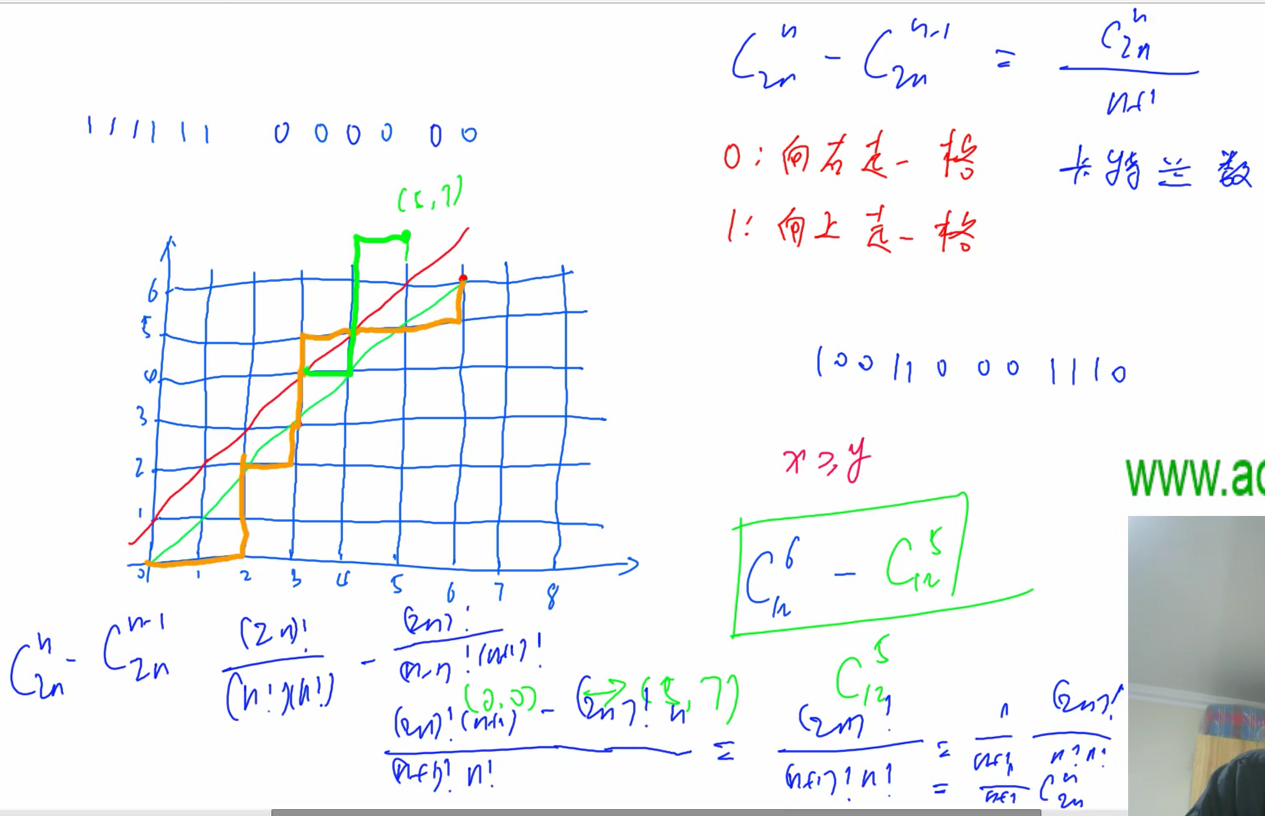 C_{2n}^{n} - C_{2n}^{n-1} = \frac{C_{2n}^{n}}{n+1}
1 1 1 1 1 1 0 0 0 0 0 0
0: 向右走一格
卡特兰数
1: 向上走一格
(5,7)
6
5
4
3
2
1
0 1 2 3 4 5 6 7 8
1 0 0 1 1 0 0 0 1 1 1 0
x ≥ y
www.ac
C_{12}^{6} - C_{12}^{5}
C_{2n}^{n} - C_{2n}^{n-1} \frac{(2n)!}{(n!)(n!)} - \frac{(2n)!}{(n-1)!(n+1)!}
C_{12}^{5}
(0,0) ↔ (5,7)
\frac{(2n)!(n+1) - (2n)! n}{(n+1)! n!} = \frac{(2n)!}{(n+1)! n!} = \frac{1}{n+1} \frac{(2n)!}{n! n!}
= \frac{}{n+1} C_{2n}^{n}